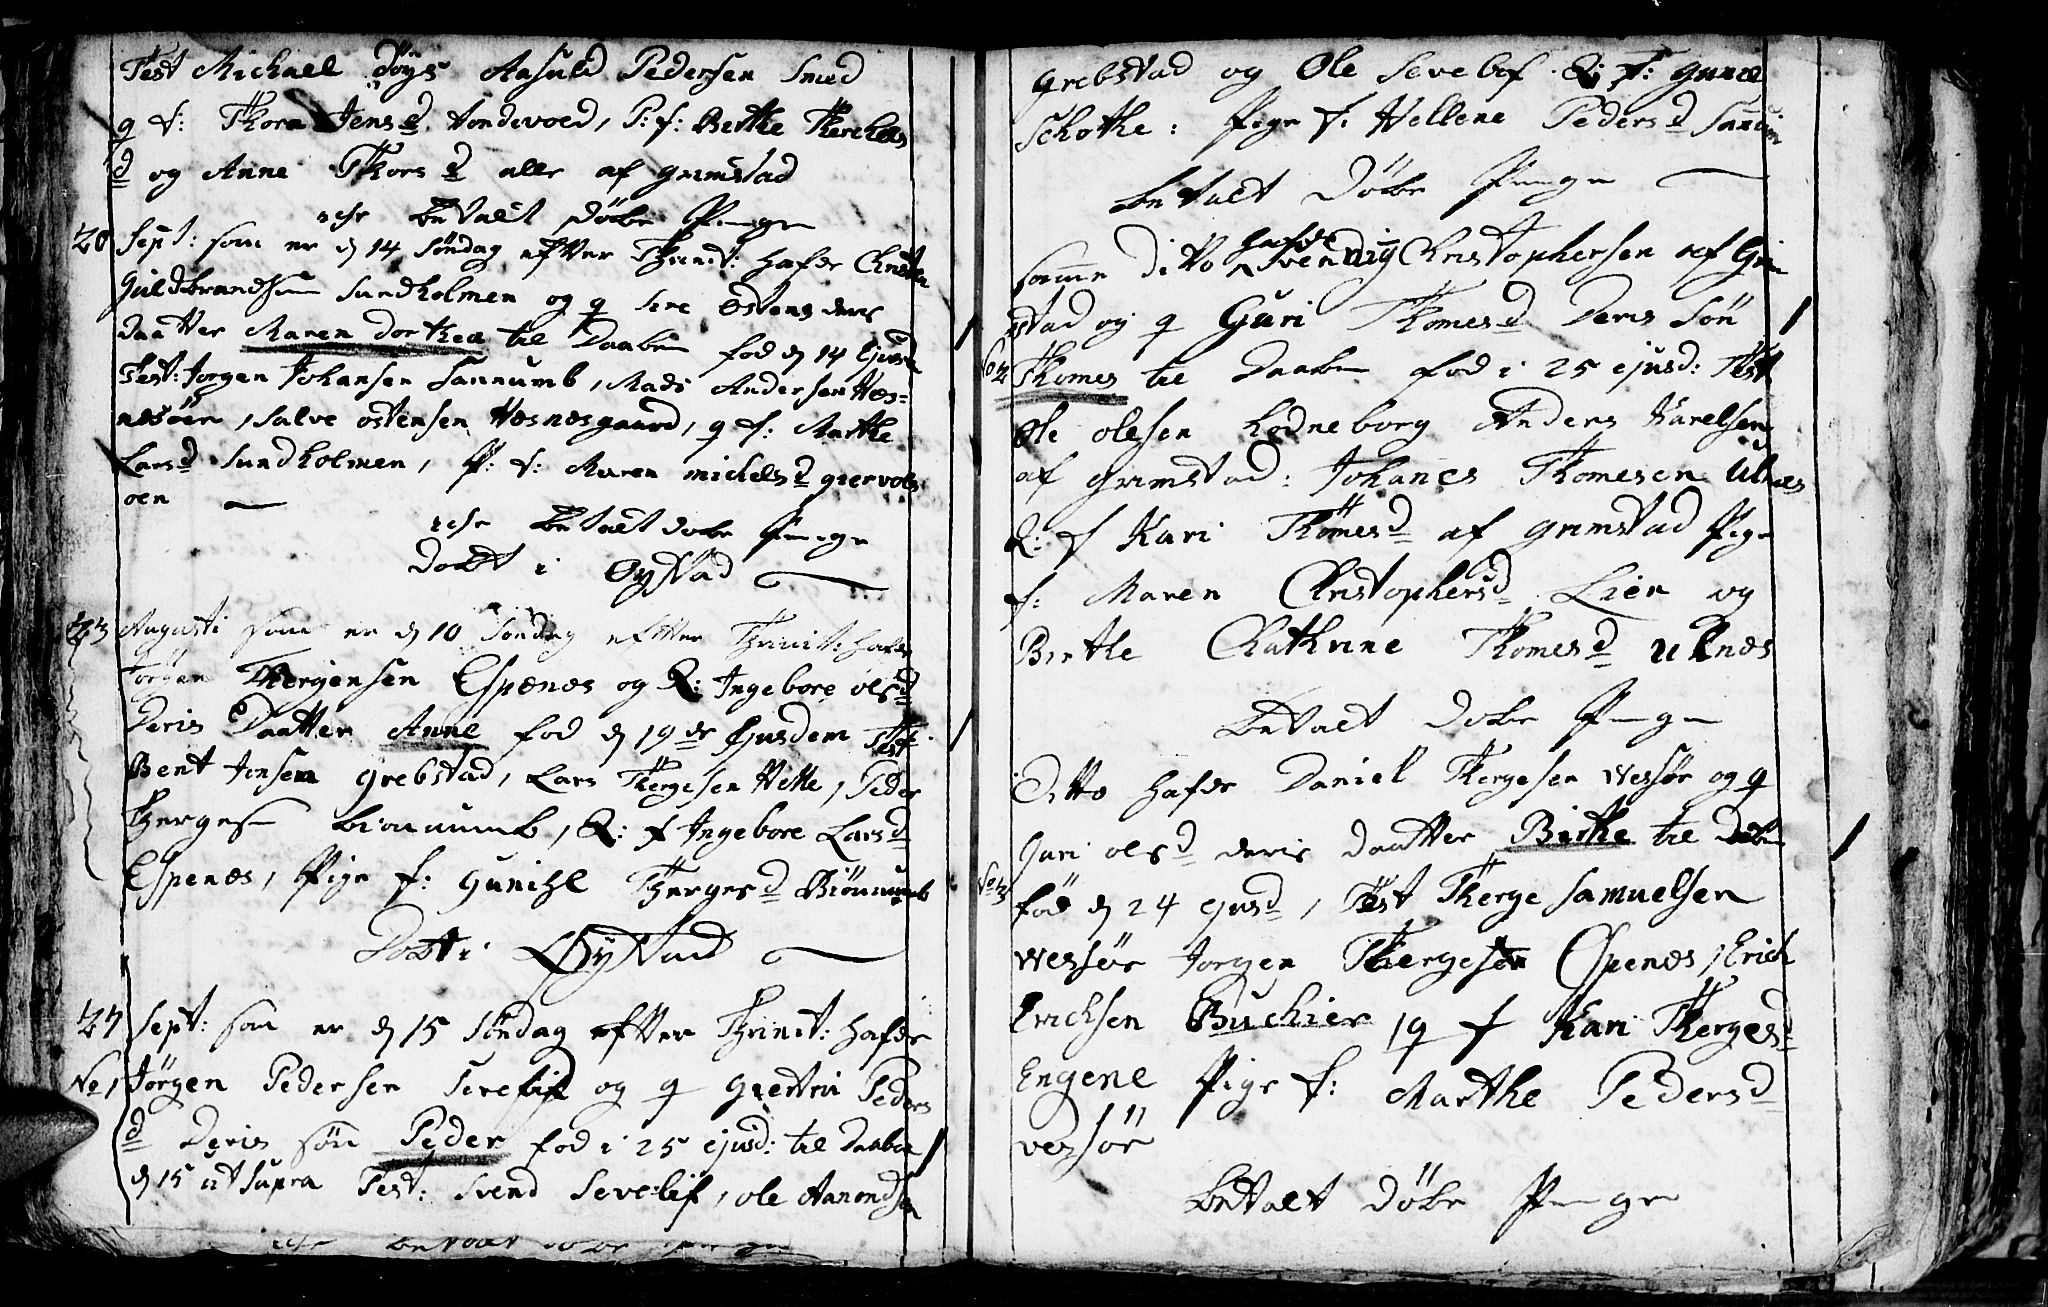 Test Michael Döys Aasuld Pedersen Smed
q f: Thora Jens d Tondevold, P: f: Berthe Therchels
d og Anne Thors d alle af Grimstad
iche betalt döbe Penge
20 Sept: som er d 14 Söndag efter Thrinit: hafde Christen
Guldbrandsen Sundholmen og q Sire Ostens deris
Daatter Maren Dorthea til Daaben fod d 14 Ejusd
Test: Jorgen Johansen Sannumb, Mads Andersen Hæs=
nesöen, Salve ostensen Hæsnesgaard, q f: Marthe
Lars d Sundholmen, P: f: Maren michels d giervols
oen
iche betalt dobe Penge
Dobt i Oystad
23 Augusti som er d 10 Söndag efter Thrinit: hafde
Jörgen Thergensen Espenæs og Q: Ingebore ols d
Deris Daatter Anne fod d 19 de Ejusdem Test
Bent Jonsen Grebstad, Lars Thergesen Hette, Peder
Therges Bionnumb, Q: f Ingebore Lars d
Espenæs, Pige f: Gunild Therges d Biönnumb
Dobt i Öystad
27 Sept: som er d 15 Söndag efter Thrinit: hafde
No 1 Jörgen Pedersen Sevelif og q Giertru Peders
d Deris sön Peder fod i 25 ejusd: til Daaben
d 15 ut Supra Test: Svend Sevelif, ole Aanonds
iche betalt döbe Penge
Grebstad og Ole Sevelif Q: f: Gunel
Schothe: Pige f: Hellene Peders d
betalt Döbe Penge
samme ditto hafde Svennig Christophersen af Grim
stad og q Guri Thomes d Deris Sön
No 2 Thomes til Daaben fod i 25 ejusd: Test
Ole olesen Lodneborg Anders Karelsen
af Grimstad: Johanes Thomesen Ulenæs
Q: f Kari Thomes d af Grimstad Pige
f: Maren Christophers d Lier og
Birthe Chathrine Thomes d Ulnæs
betalt Dobe Penge
Ditto hafde Daniel Thergesen Vessör og q
Guri ols d deris Daatter Birthe til Daaben
No 3 föd d 24 ejusd, Test Therge Samuelsen
Vessör Jorgen Thergesen Espenæs, Erich
Erichsen Buchier q f Kari Therges d
Engene Pige f: Marthe Peders d
vessör
betalt Döbe Penge